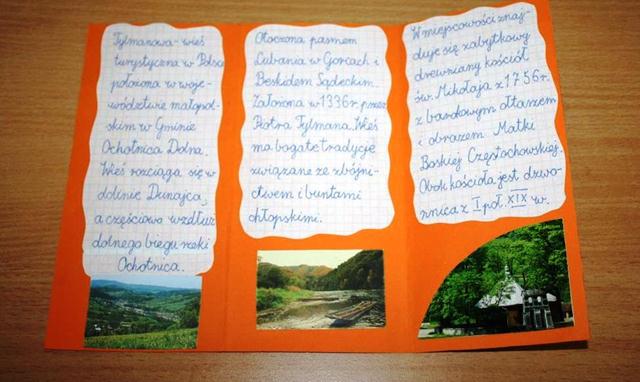 Tylmanowa - wieś
turystyczna w Polsce
położona w woje-
wództwie małopol-
skim w Gminie
Ochotnica Dolna.
Wieś rozciąga się w
dolinie Dunajca,
a częściowo wzdłuż
dolnego biegu rzeki
Ochotnica.
Otoczona pasmem
Lubania w Gorcach i
Beskidem Sądeckim.
Założona w 1336r. przez
Piotra Tylmana. Wieś
ma bogate tradycje
związane ze zbójni-
ctwem i buntami
chłopskimi.
W miejscowości znaj-
duje się zabytkowy
drewniany kościół
św. Mikołaja z 1756r.
z barokowym ołtarzem
i obrazem Matki
Boskiej Częstochowskiej.
Obok kościoła jest dzwo-
nnica z I poł. XIX w.